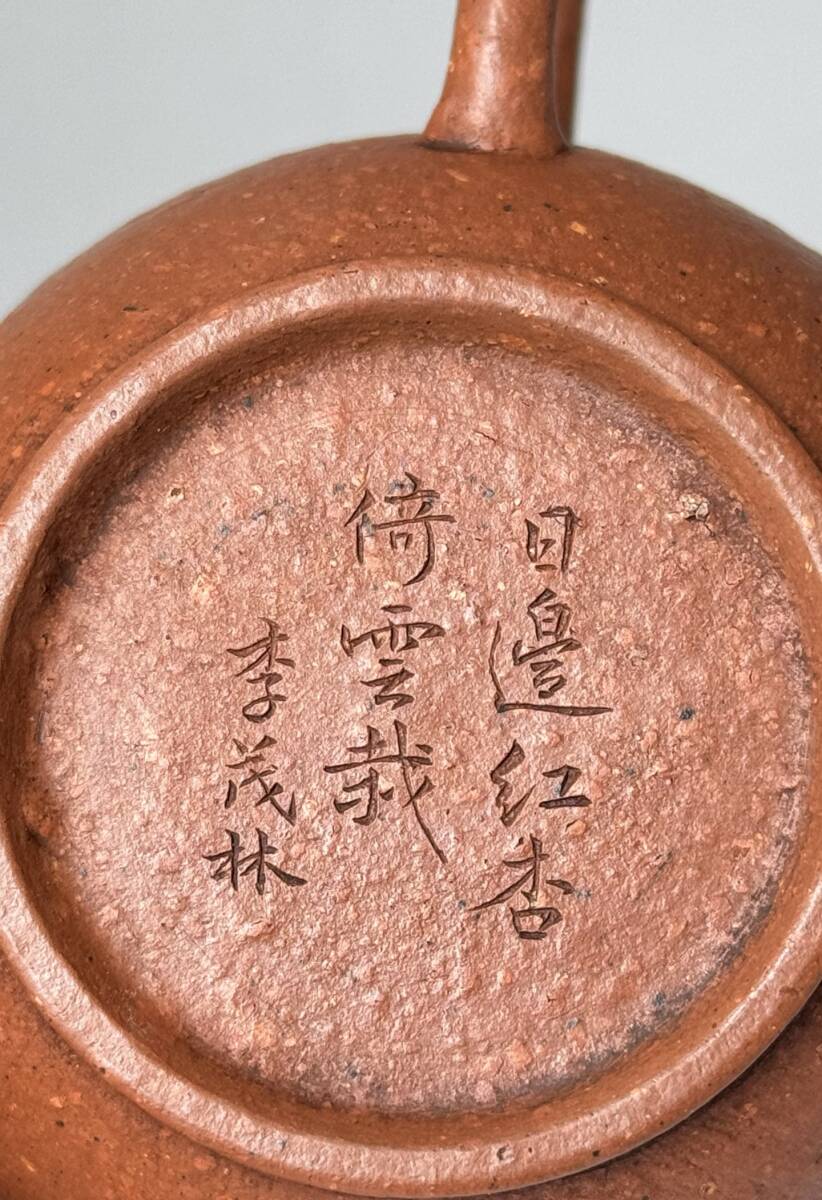 日邊紅杏
倚雲栽
李茂林